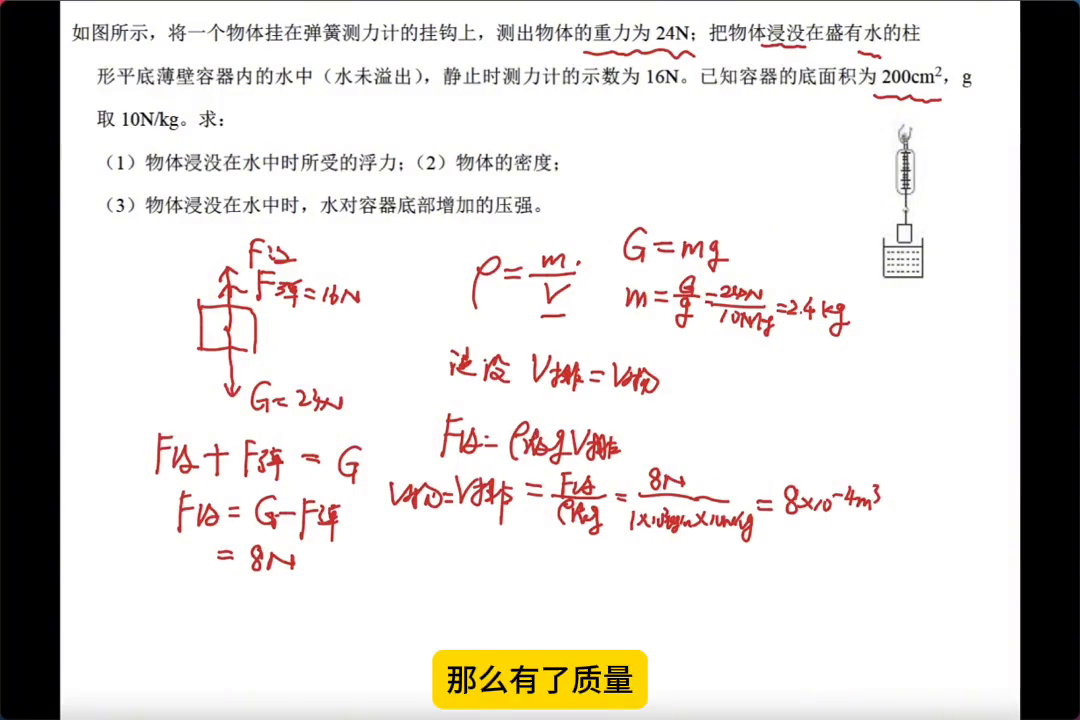 如图所示，将一个物体挂在弹簧测力计的挂钩上，测出物体的重力为 24N；把物体浸没在盛有水的柱
形平底薄壁容器内的水中（水未溢出），静止时测力计的示数为 16N。已知容器的底面积为 200cm²，g
取 10N/kg。求：
（1）物体浸没在水中时所受的浮力；（2）物体的密度；
（3）物体浸没在水中时，水对容器底部增加的压强。
F浮
F弹=16N
G=24N
F浮+F弹=G
F浮=G-F弹
=8N
ρ=m/V
G=mg
m=G/g=24N/10N/kg=2.4kg
浸没 V排=V物
F浮=ρ液gV排
V物=V排=F浮/ρ液g=8N/1×10³kg/m³×10N/kg=8×10⁻⁴m³
那么有了质量